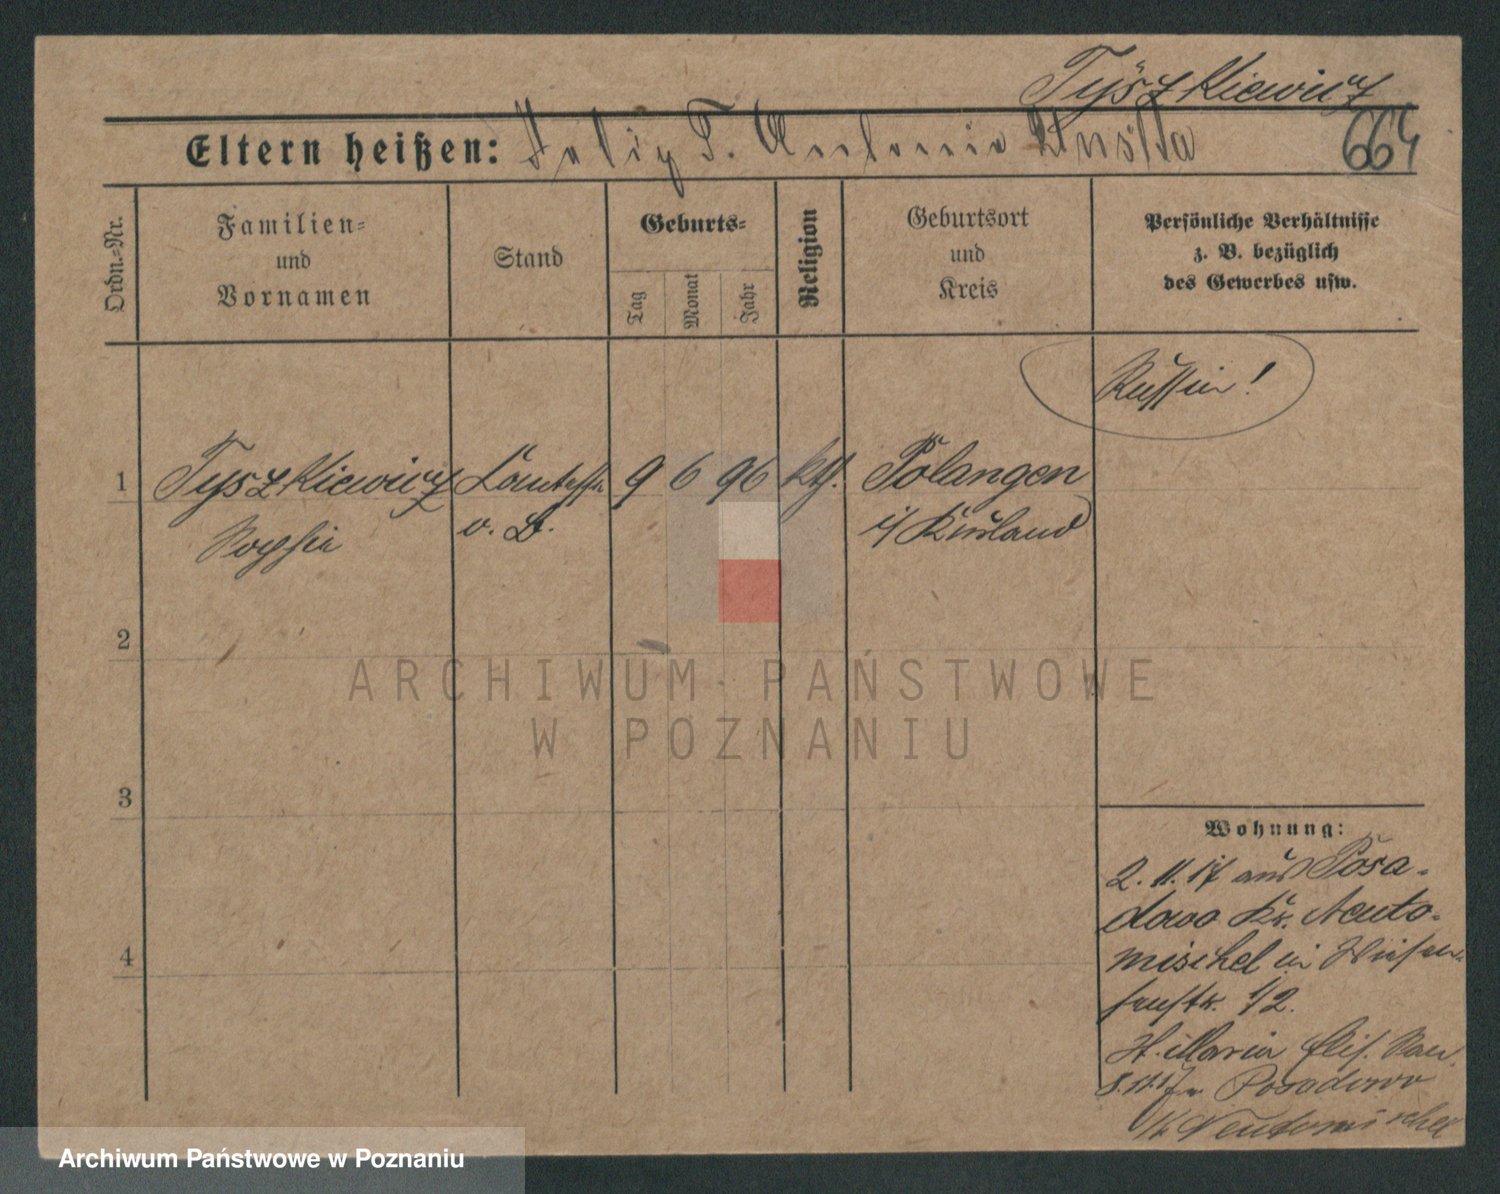 Tyszkiewicz
664
Eltern heißen: Felix T. Antonie
Ordn.=Nr.
Familien=
und
Vornamen
Stand
Geburts=
Tag
Monat
Jahr
Religion
Geburtsort
und
Kreis
Persönliche Verhältnisse
z. B. bezüglich
des Gewerbes usw.
Russin!
1 Tyszkiewicz Comtesse 9 6 96 kth. Polangen
Sophie v. B. i/ Kurland
2
3
4
Wohnung:
2. 11. 17 aus Posa-
dowo Kr. Neuto-
mischel in
1/2.
H. Maria
8. 11. 17 n. Posadowo
Kr. Neutomischel
ARCHIWUM PAŃSTWOWE
W POZNANIU
Archiwum Państwowe w Poznaniu